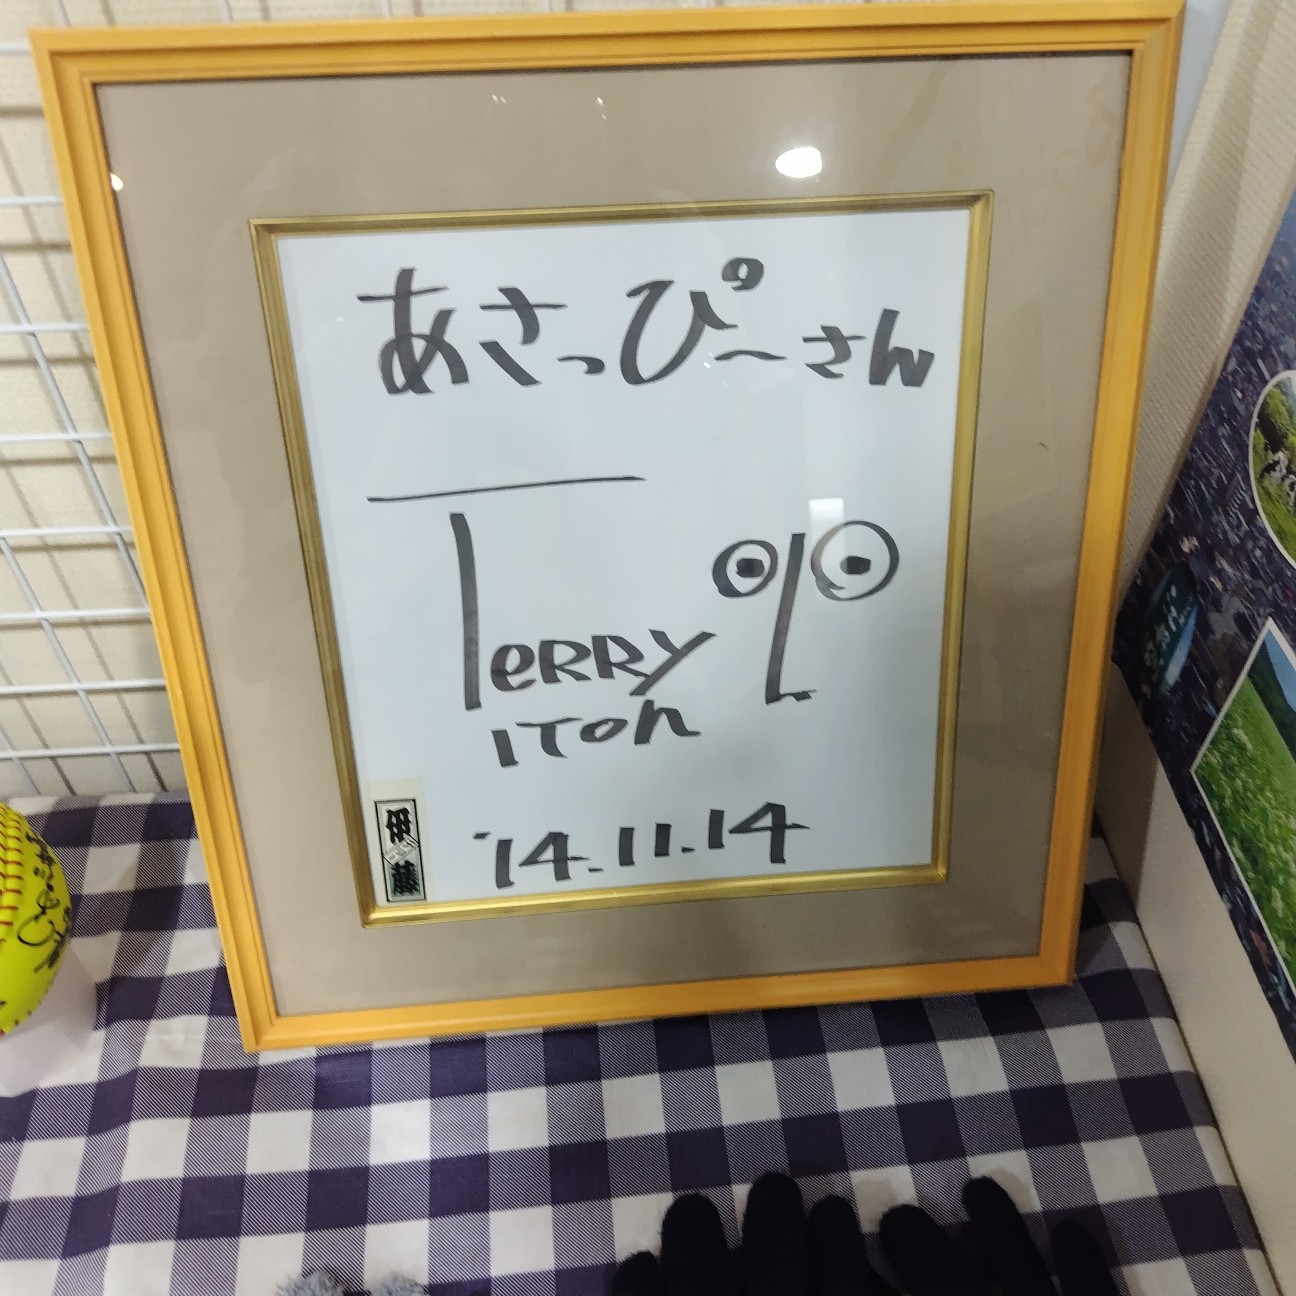 あさっぴ〜さん
Terry
ITOh
'14.11.14
伊藤